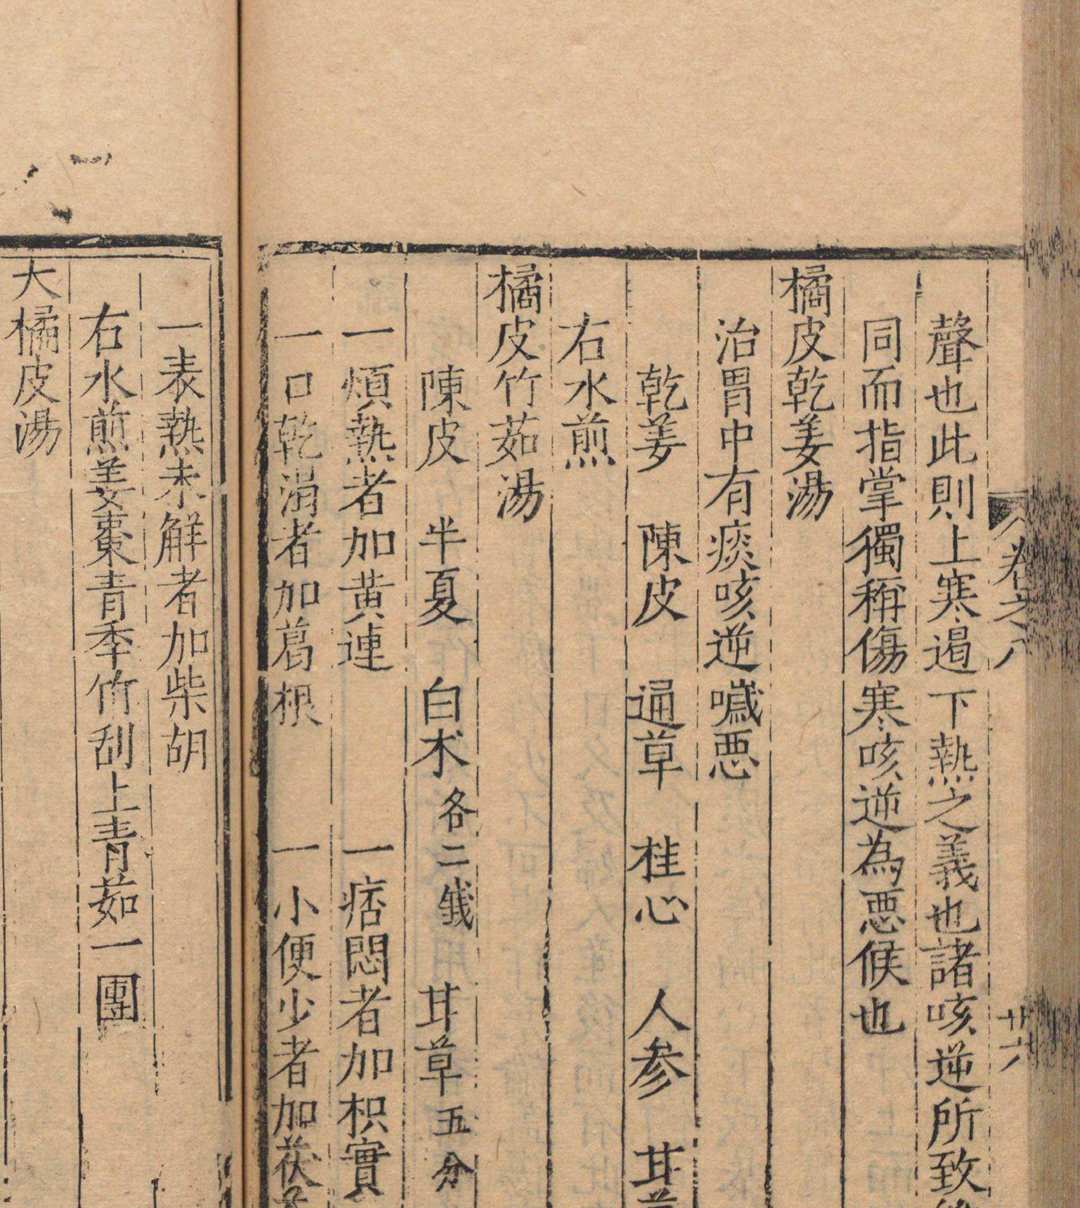 卷之八 廿六
聲也此則上寒遏下熱之義也諸咳逆所致
同而指掌獨稱傷寒咳逆為惡候也
橘皮乾姜湯
治胃中有痰咳逆噦惡
乾姜 陳皮 通草 桂心 人參 甘草
右水煎
橘皮竹茹湯
陳皮 半夏 白朮各二錢 甘草五分
一煩熱者加黃連 一痞悶者加枳實
一口乾渴者加葛根 一小便少者加茯
一表熱未解者加柴胡
右水煎姜棗青季竹刮上青茹一團
大橘皮湯